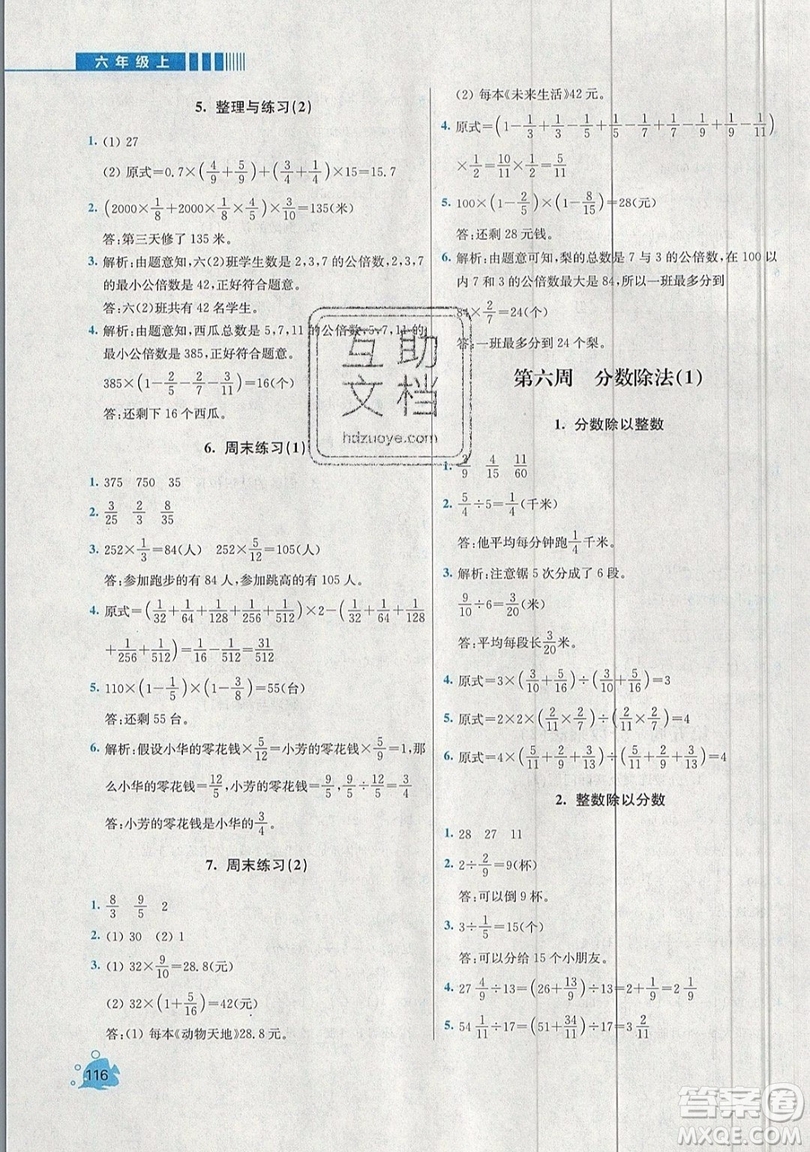 六年级上
5. 整理与练习(2)
1. (1) 27
(2) 原式=0.7×(4/9+5/9)+(3/4+1/4)×15=15.7
2. (2000×1/8+2000×1/8×4/5)×3/10=135(米)
答:第三天修了 135 米。
3. 解析:由题意知,六(2)班学生数是 2,3,7 的公倍数,2,3,7
的最小公倍数是 42,正好符合题意。
答:六(2)班共有 42 名学生。
4. 解析:由题意知,西瓜总数是 5,7,11 的公倍数,5,7,11 的
最小公倍数是 385,正好符合题意。
385×(1-1/5-1/7-7/11)=16(个)
答:还剩下 16 个西瓜。
6. 周末练习(1)
1. 375 750 35
2. 3/25 2/3 8/35
3. 252×1/3=84(人) 252×5/12=105(人)
答:参加跑步的有 84 人,参加跳高的有 105 人。
4. 原式=(1/32+1/64+1/128+1/256+1/512)×2-(1/32+1/64+1/128
+1/256+1/512)=1/16-1/512=31/512
5. 110×(1-1/5)×(1-3/8)=55(台)
答:还剩 55 台。
6. 解析:假设小华的零花钱×5/12=小芳的零花钱×5/9=1,那
么小华的零花钱=12/5,小芳的零花钱=9/5, 9/5÷12/5=3/4。
答:小芳的零花钱是小华的3/4。
7. 周末练习(2)
1. 8/3 9/5 2
2. (1) 30 (2) 1
3. (1) 32×9/10=28.8(元)
(2) 32×(1+5/16)=42(元)
答:(1) 每本《动物天地》28.8 元。
116
(2) 每本《未来生活》42 元。
4. 原式=(1-1/3+1/3-1/5+1/5-1/7+1/7-1/9+1/9-1/11)
×1/2=10/11×1/2=5/11
5. 100×(1-2/5)×(1-8/15)=28(元)
答:还剩 28 元钱。
6. 解析:由题意可知,梨的总数是 7 与 3 的公倍数,在 100 以
内 7 和 3 的公倍数最大是 84,所以一班最多分到
84×2/7=24(个)
答:一班最多分到 24 个梨。
第六周 分数除法(1)
1. 分数除以整数
1. 2/9 4/15 11/60
2. 5/4÷5=1/4(千米)
答:他平均每分钟跑1/4千米。
3. 解析:注意锯 5 次分成了 6 段。
9/10÷6=3/20(米)
答:平均每段长3/20米。
4. 原式=3×(3/10+5/16)÷(3/10+5/16)=3
5. 原式=2×2×(2/11×2/7)÷(2/11×2/7)=4
6. 原式=4×(5/11+2/9+3/13)÷(5/11+2/9+3/13)=4
2. 整数除以分数
1. 28 27 11
2. 2÷2/9=9(杯)
答:可以倒 9 杯。
3. 3÷1/5=15(个)
答:可以分给 15 个小朋友。
4. 27 4/9÷13=(26+13/9)÷13=2+1/9=2 1/9
5. 54 1/11÷17=(51+34/11)÷17=3 2/11
互助
文档
hdzuoye.com
答案圈
MXQE.COM